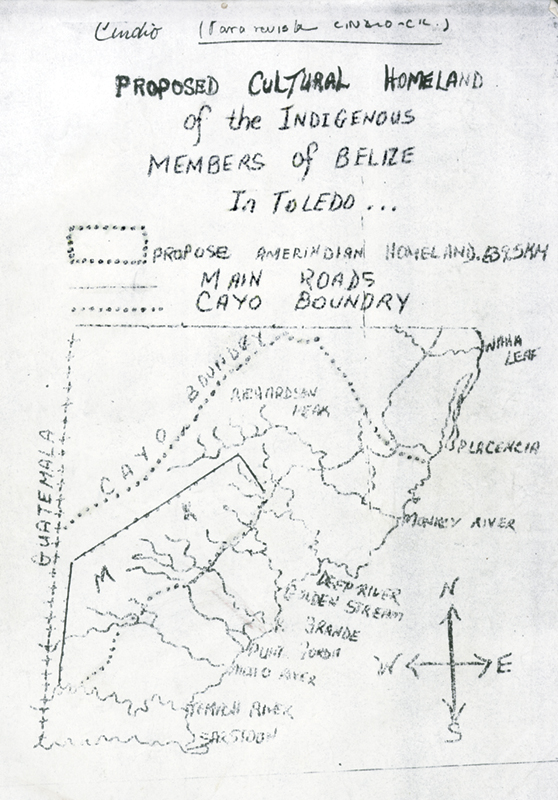 (Para revista CINDIO-CR.)
PROPOSED CULTURAL HOMELAND
of the INDIGENOUS
MEMBERS of BELIZE
In TOLEDO ...
PROPOSE AMERINDIAN HOMELAND.
MAIN ROADS
CAYO BOUNDRY
CAYO BOUNDRY
LEAF
RICHARDSON
PEAK
PLACENCIA
GUATEMALA
MONKEY RIVER
M
DEEP RIVER
GOLDEN STREAM
GRANDE
PUNTA GORDA
MOHO RIVER
RIVER
SARSTOON
N
W
E
S